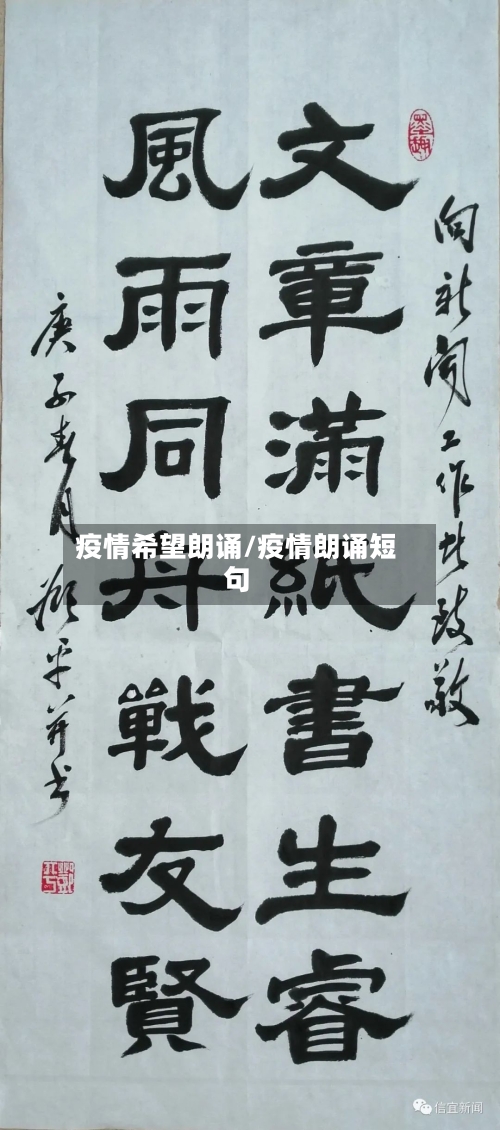 向新闻工作者致敬
文章滿紙書生睿
風雨同舟戰友賢
庚子春月 平并书
疫情希望朗诵/疫情朗诵短
句
信宜新闻